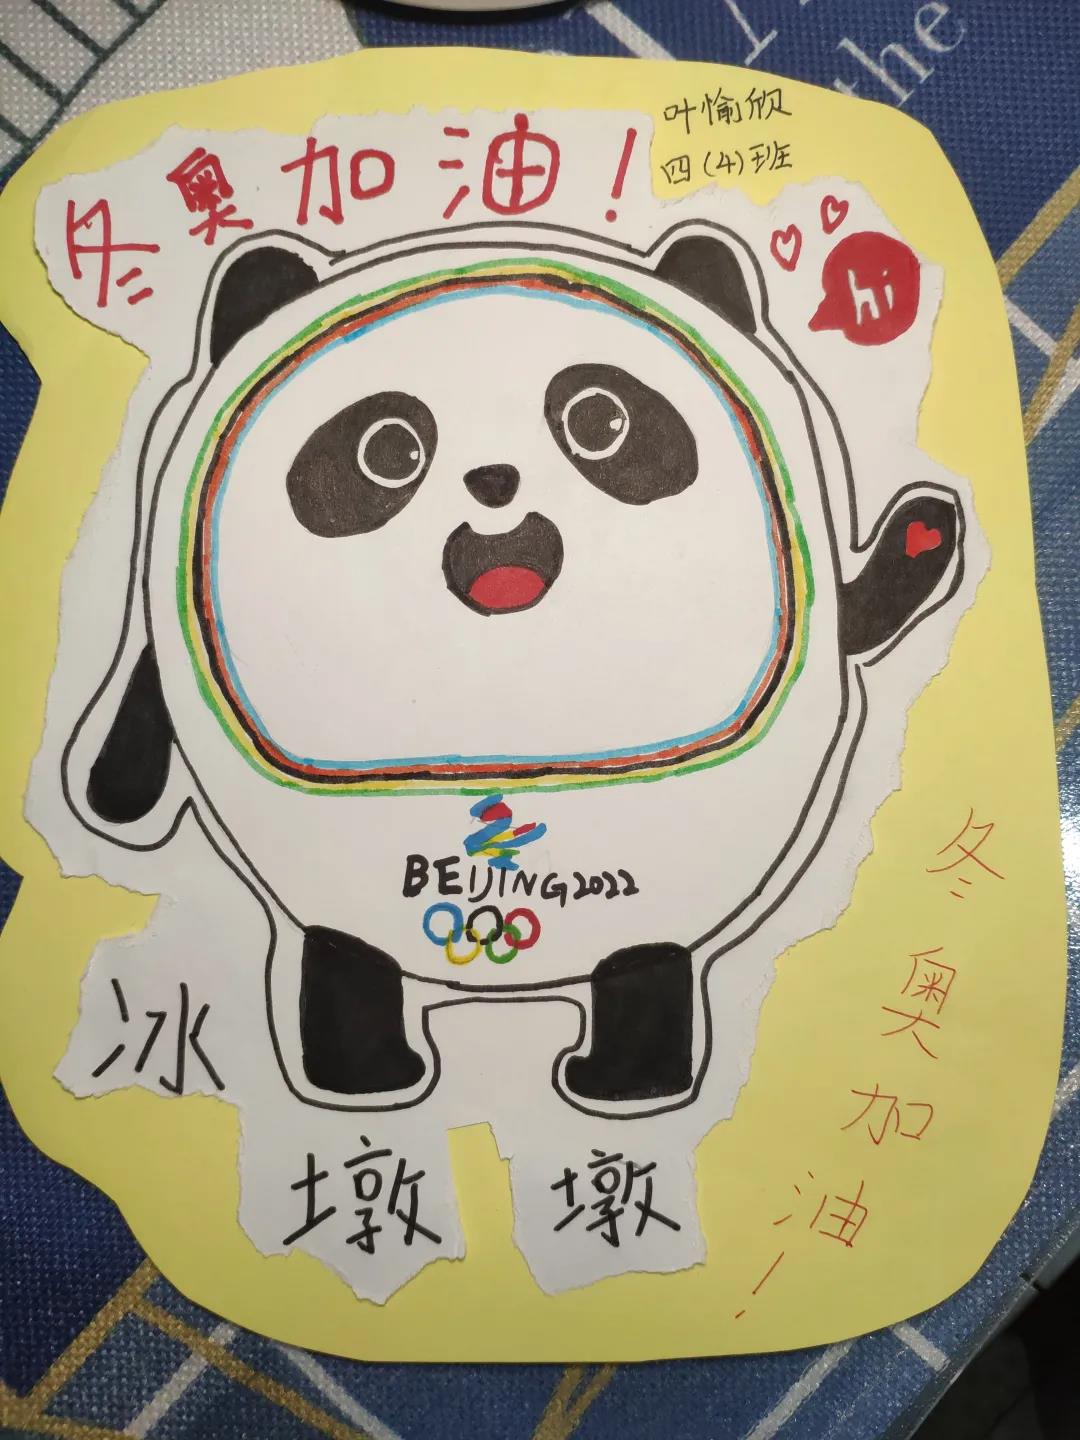 叶愉欣
四(4)班
冬奥加油!
hi
BEIJING2022
冰墩墩
冬奥加油!
the